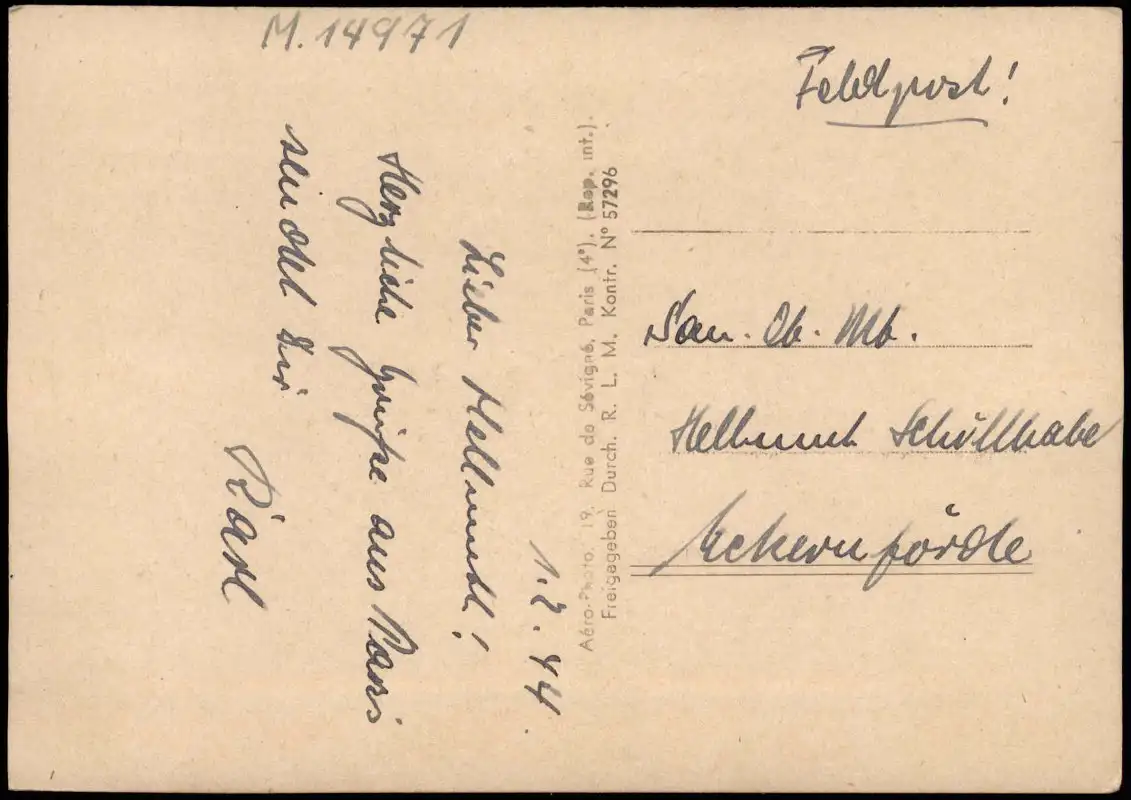 M. 14971
1.2.44.
Lieber Hellmuth!
Herzliche Grüße aus Paris
sendet Dir
Karl
Aéro-Photo. 19, Rue de Sévigné, Paris (4e). (Rep. int.).
Freigegeben Durch. R. L. M. Kontr. No 57296
Feldpost!
San. Ob. Mt.
Hellmuth Schüllhabe
Eckernförde